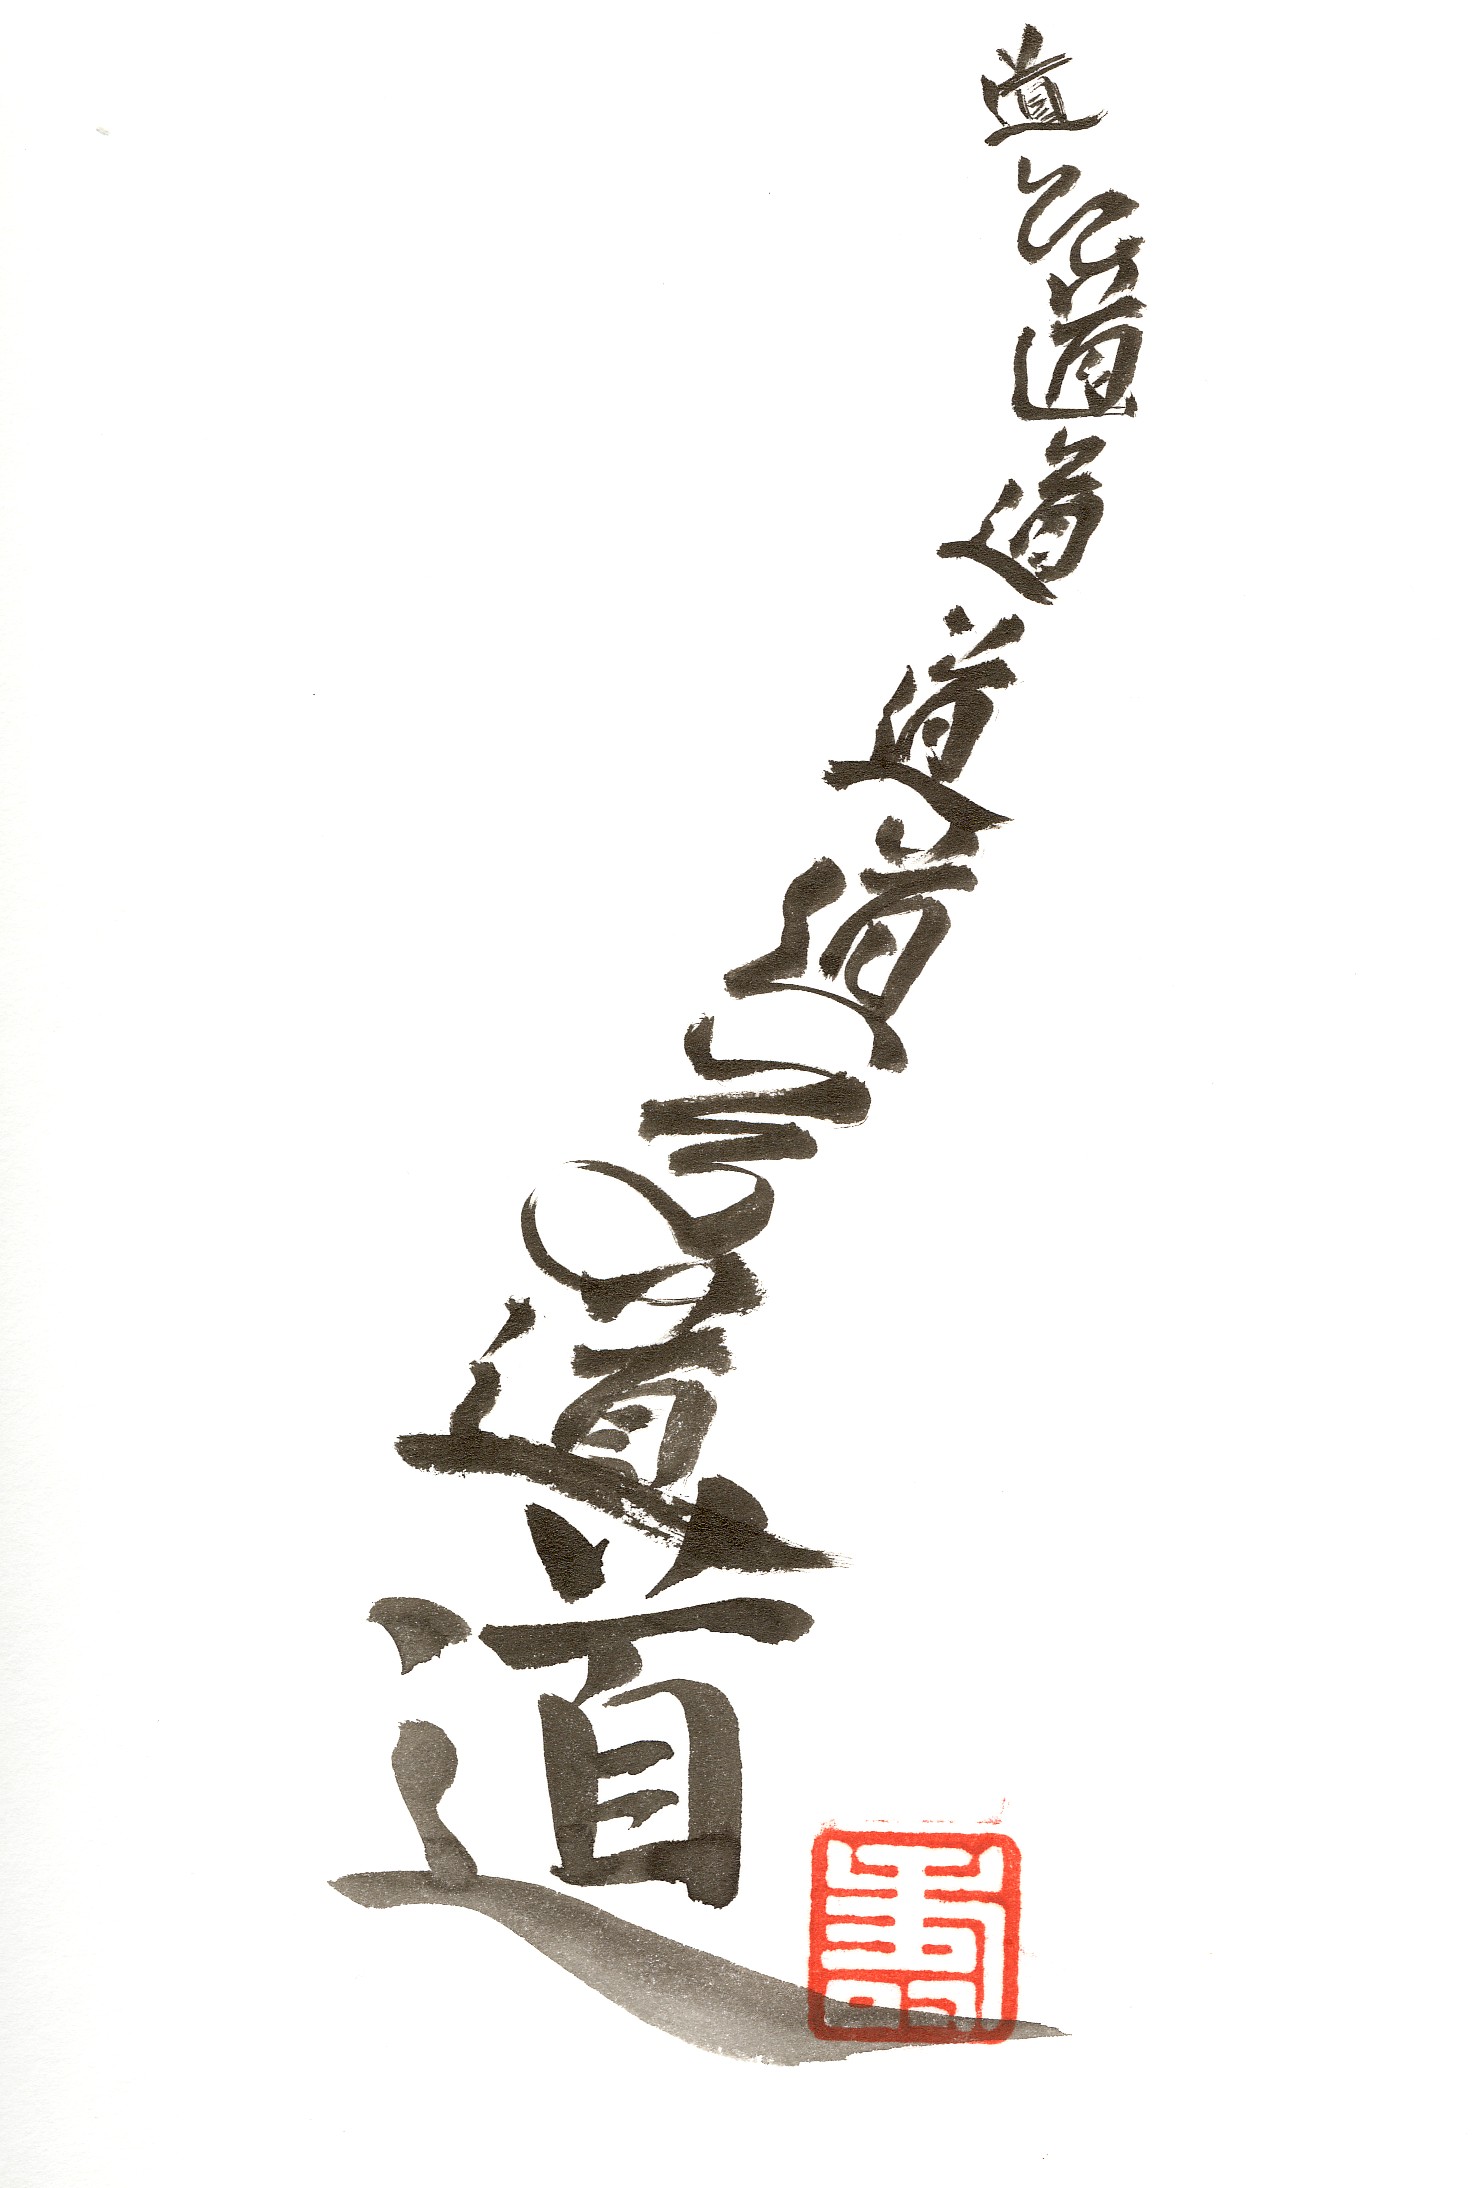 道道道道道道道道道
壽